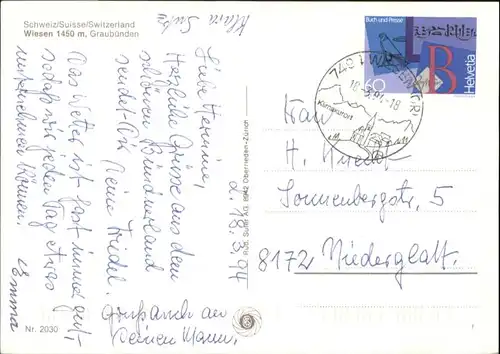 Schweiz/Suisse/Switzerland
Wiesen 1450 m, Graubünden
Liebe Hermine,
Herzliche Grüsse aus dem
schönen Bündnerland
sendet Dir Deine Friedel.
Das Wetter ist fast immer gut,
sodass wir jeden Tag etwas
unternehmen können.
Emma
Gruss auch an
Deinen Mann.
d. 18.3.94
Nr. 2030
Rud. Suter AG, 8942 Oberrieden-Zürich
Buch und Presse
60
B
Helvetia
18.3.94-18
Kurort
Frau
H.
Sonnenbergstr. 5
8172 Niederglatt.